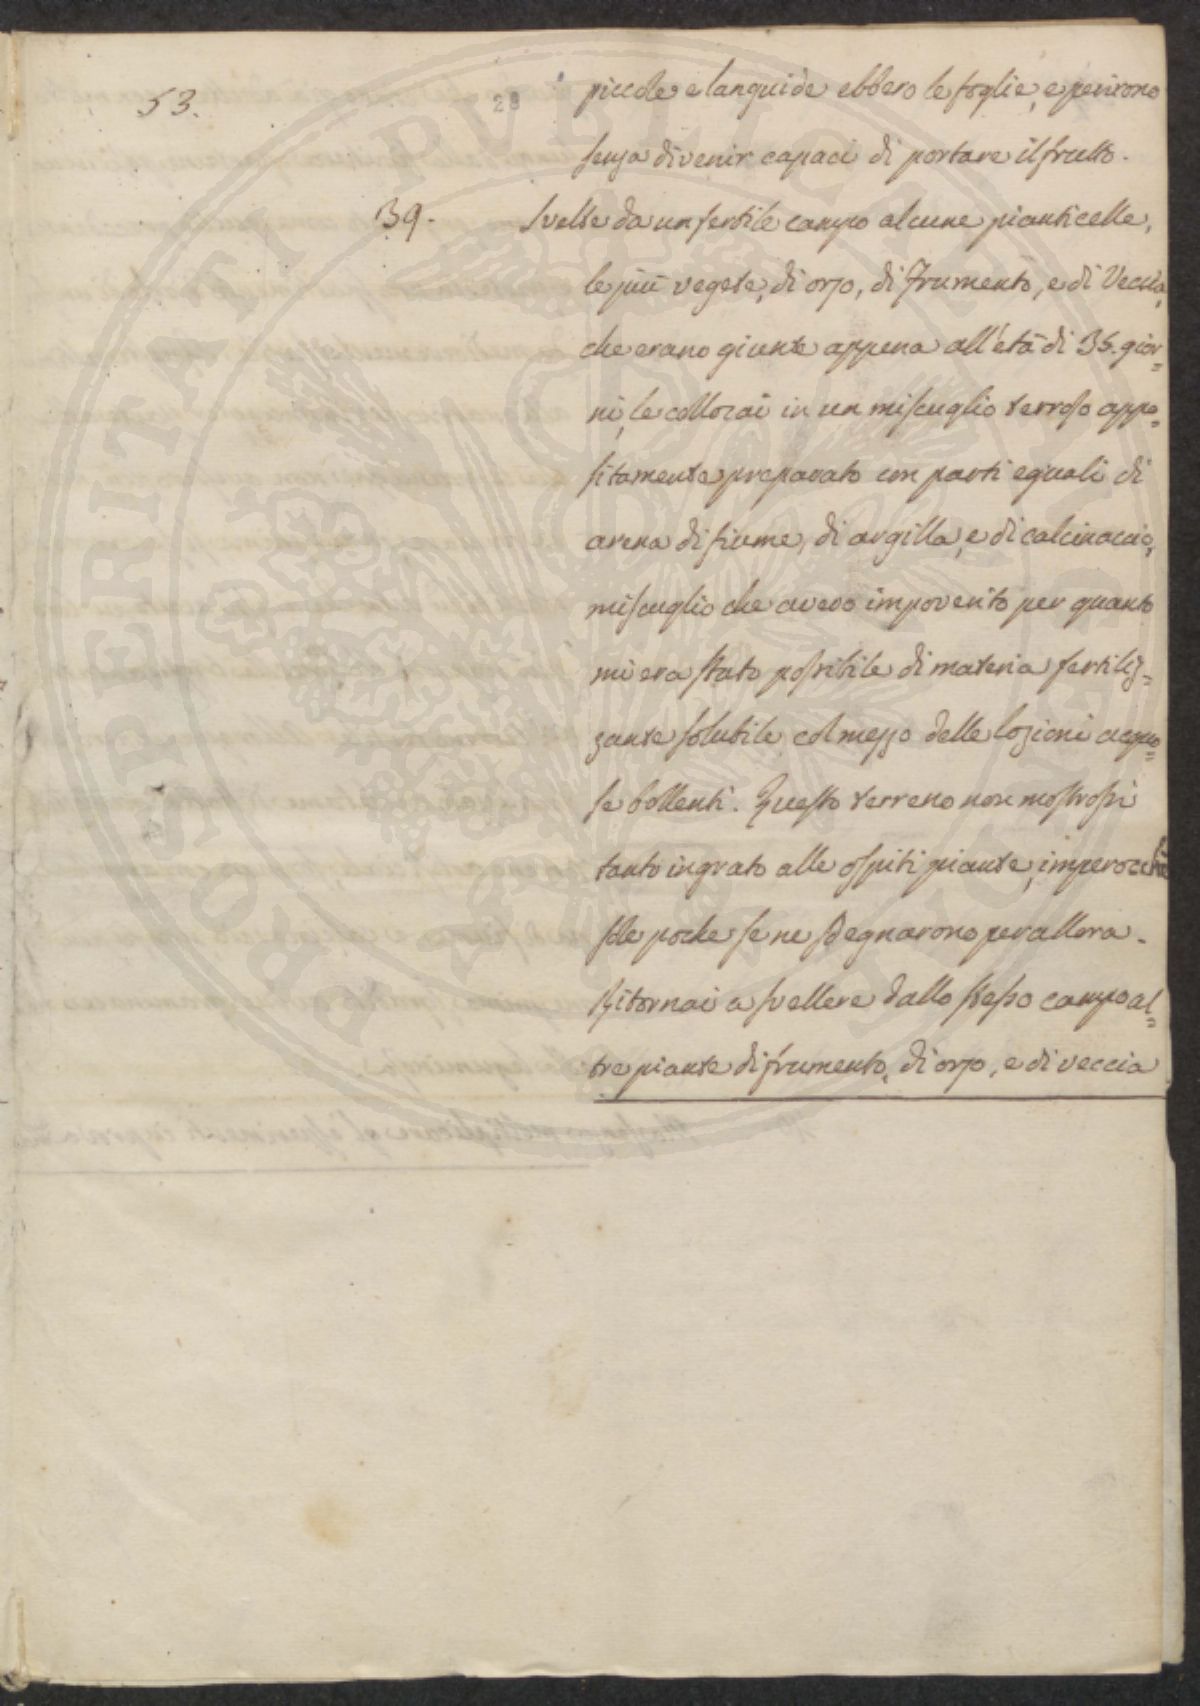 53.
28
piccole e languide ebbero le foglie, e perirono
senza divenir capaci di portare il frutto.
39. Svelte da un fertile campo alcune pianticelle,
le più vegete, di orzo, di frumento, e di Veccia,
che erano giunte appena all'età di 35. gior=
ni, le collocai in un miscuglio terroso appo=
sitamente preparato con parti eguali di
arena di fiume, di argilla, e di calcinaccio,
miscuglio che avevo impoverito per quanto
mi era stato possibile di materia fertiliz=
zante solubile col mezzo delle lozioni acquo=
se bollenti. Questo terreno non mostrossi
tanto ingrato alle ospiti piante, imperocchè
sole poche se ne sdegnarono per allora.
Ritornai a svellere dallo stesso campo al=
tre piante di frumento, di orzo, e di veccia
PROSPERITATI PVBLICAE AVGENDAE